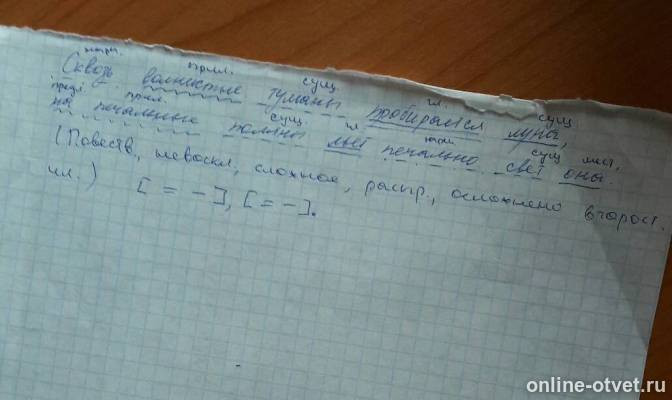 нареч. прил. сущ. гл. сущ.
Сквозь волнистые туманы пробирается луна,
предл. прил. сущ. гл. нареч. сущ. мест.
на печальные поляны льёт печально свет она.
(Повеств., невоскл., сложное, распр., осложнено второст.
чл.) [= -], [= -].
online-otvet.ru